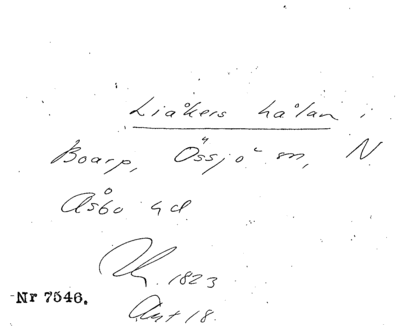 Liåkers hålan i
Boarp, Össjö sn, N
Åsbo hd
1823
Nr 7546.
Akt 18.